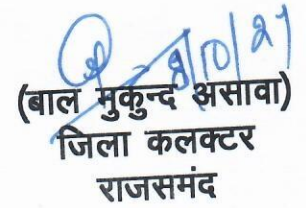 8/10/21
(बाल मुकुन्द असावा)
जिला कलक्टर
राजसमंद